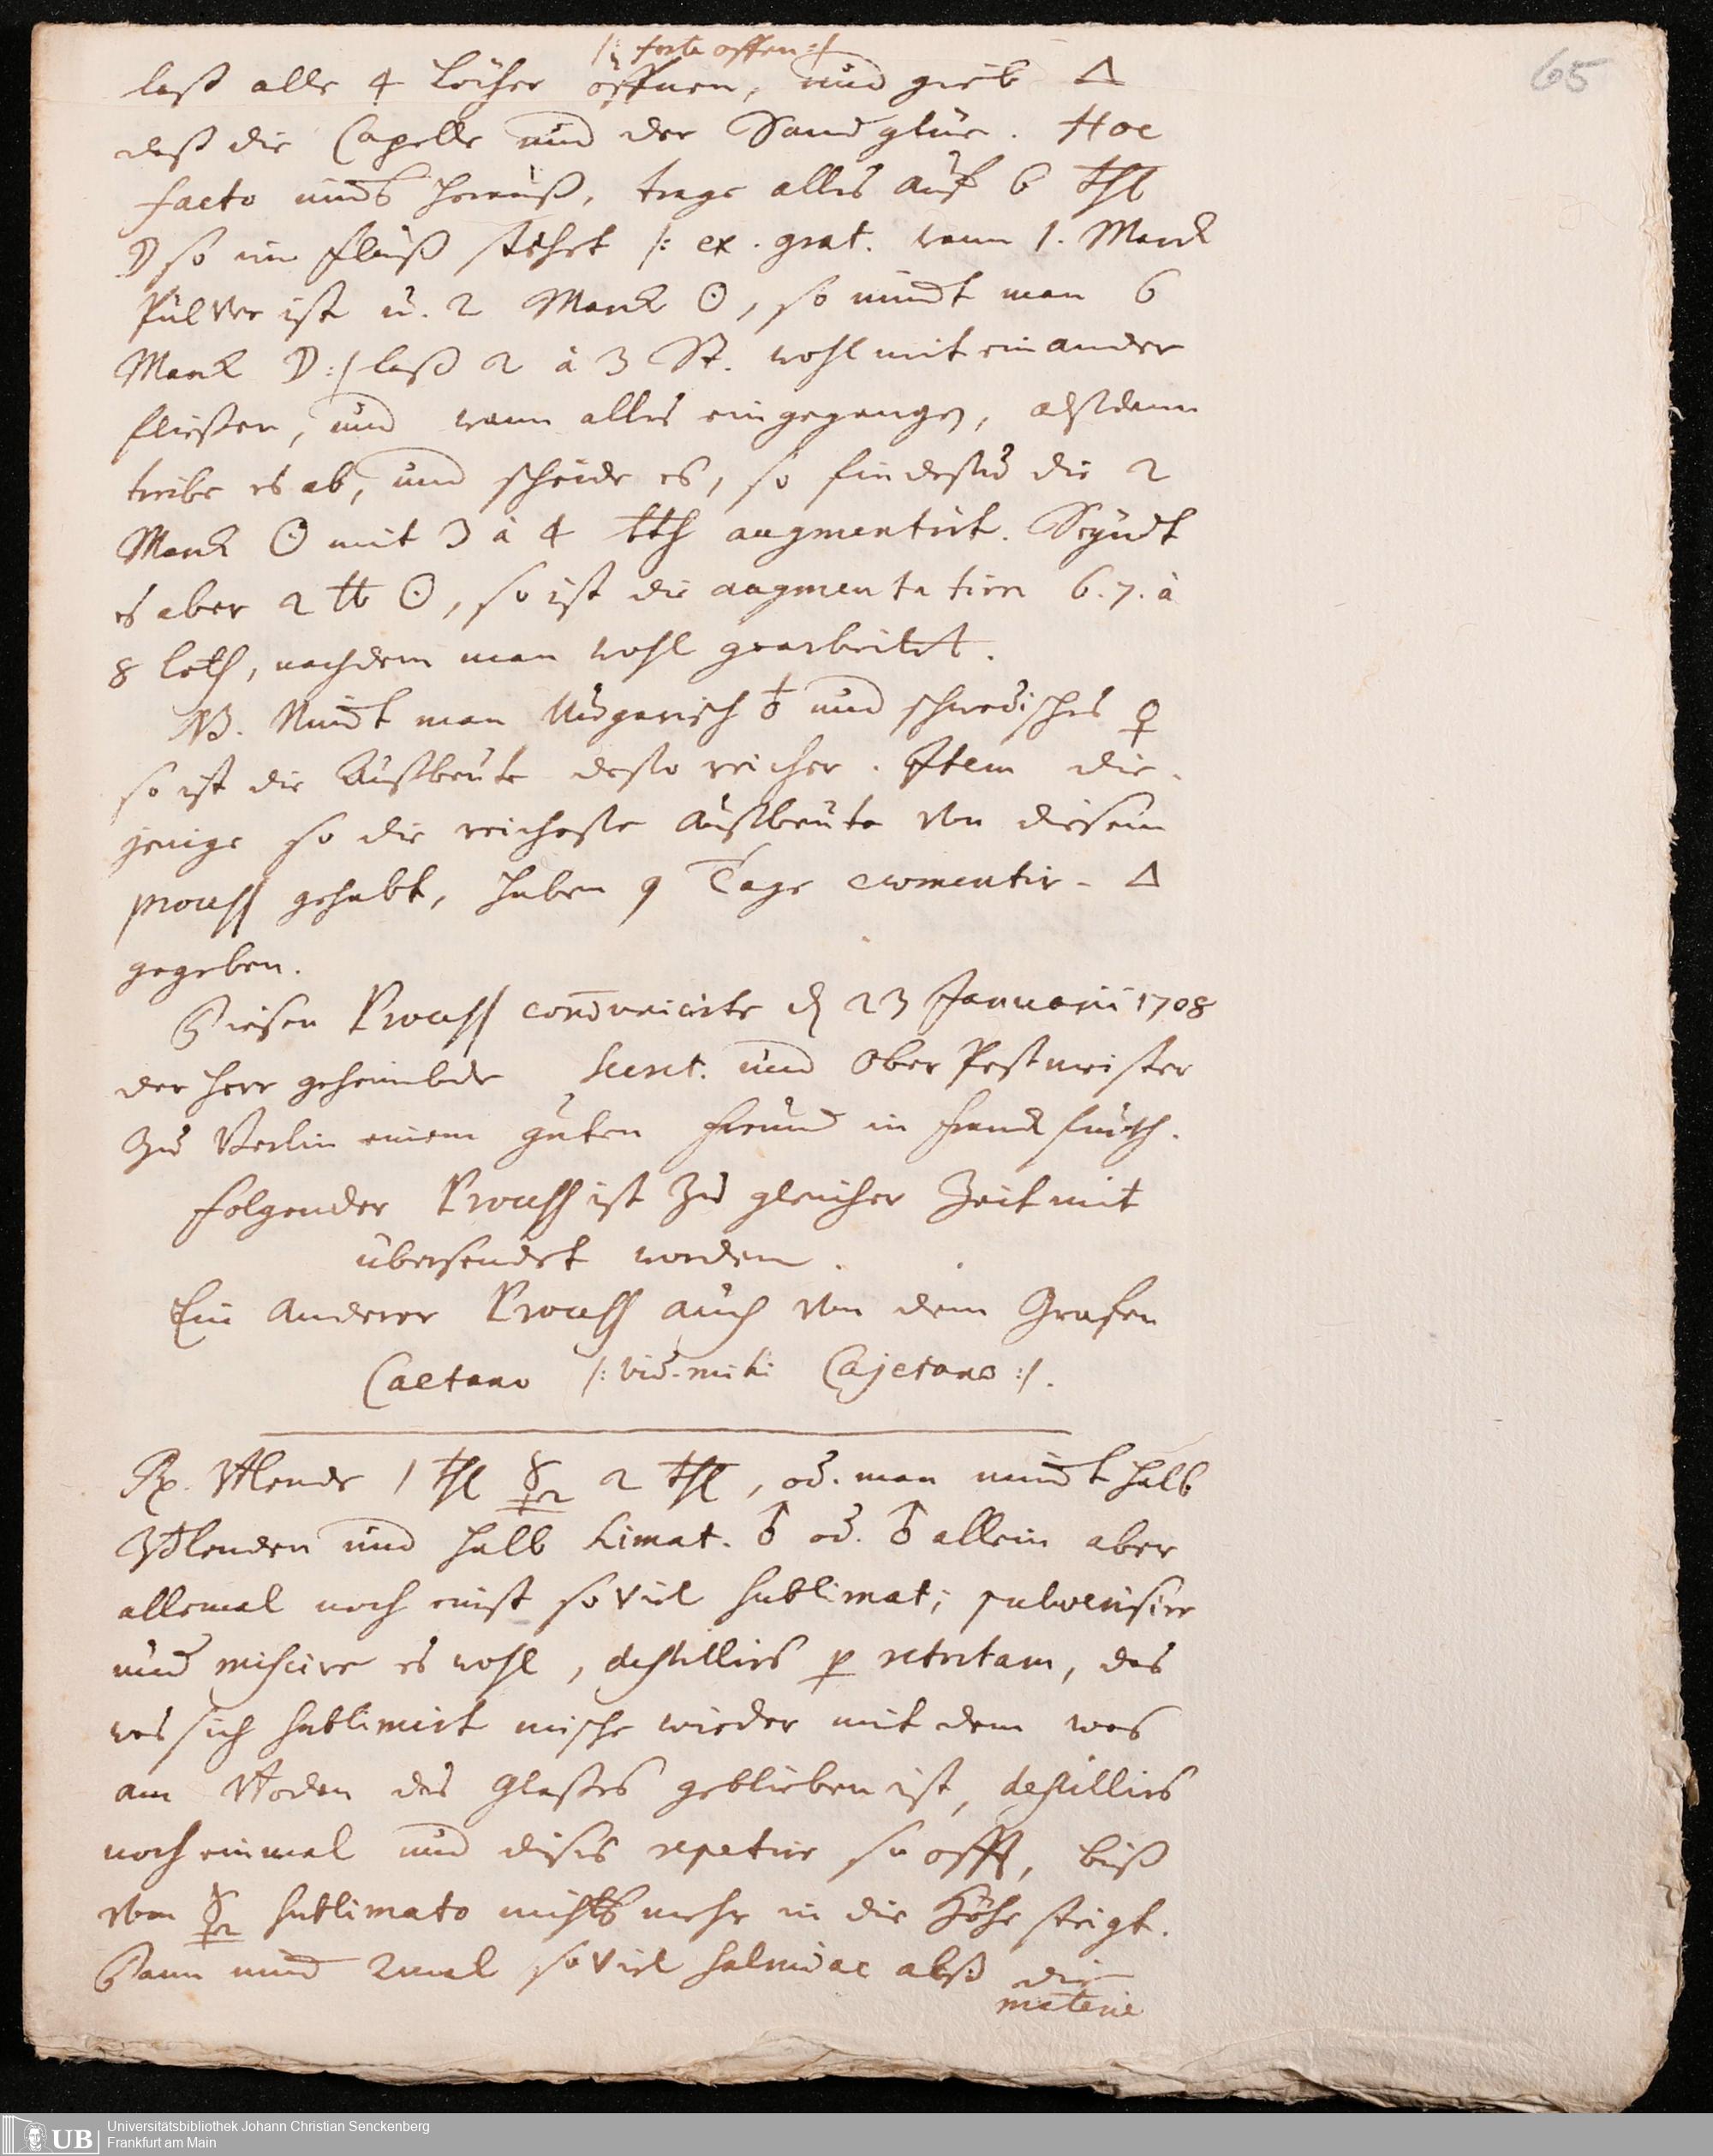 65
/: forte offen :/
laß alle 4 Löcher öffnen, und gieb △
daß die Capelle und der Sand glüe. Hoc
facto nimbs heraus, trage alles auf 6 Thl
☽ so im Fluß stehet /: ex. grat. wann 1. Marck
Pulver ist u. 2 Marck ☉, so nimbt man 6
Marck ☽ :/ laß 2 à 3 St. wohl mit einander
fließen, und wann alles eingegangen, alßdann
treibe es ab, und scheide es, so findestu die 2
Marck ☉ mit 3 à 4 Lth augmentirt. Seyndt
es aber 2 ℔ ☉, so ist die augmentation 6. 7. à
8 Loth, nachdem man wohl gearbeitet.
NB. Nimbt man Ungarisch ♁ und schwedisches ♀
so ist die Außbeute desto reicher. Item die-
jenige so die reichste Außbeute von diesem
process gehabt, haben 9 Tage cementir- △
gegeben.
Diesen Process communicirte d 23 Januarii 1708
der Herr geheimbde Secret. und Ober Postmeister
zu Berlin einem guten Freund in Franckfurth.
Folgender Process ist zu gleicher Zeit mit
übersendet worden.
Ein anderer Process auch von dem Grafen
Caetano /: vid. mihi Cajetano :/.
Rp. Blende 1 Thl ☿ 2 Thl, od. man nimbt halb
Blenden und halb Limat. ♂ od. ♂ allein aber
allemal noch einst so viel Sublimat; pulverisire
und miscire es wohl, destillirs p retortam, das
was sich sublimirt mische wieder mit dem was
am Boden des Glaßes geblieben ist, destillirs
noch einmal und dises repetire so offt, biß
vom ☿ sublimato nichts mehr in die Höhe steigt.
Dann nimb 2mal so viel Salmiac alß die
materie
UB Universitätsbibliothek Johann Christian Senckenberg
Frankfurt am Main